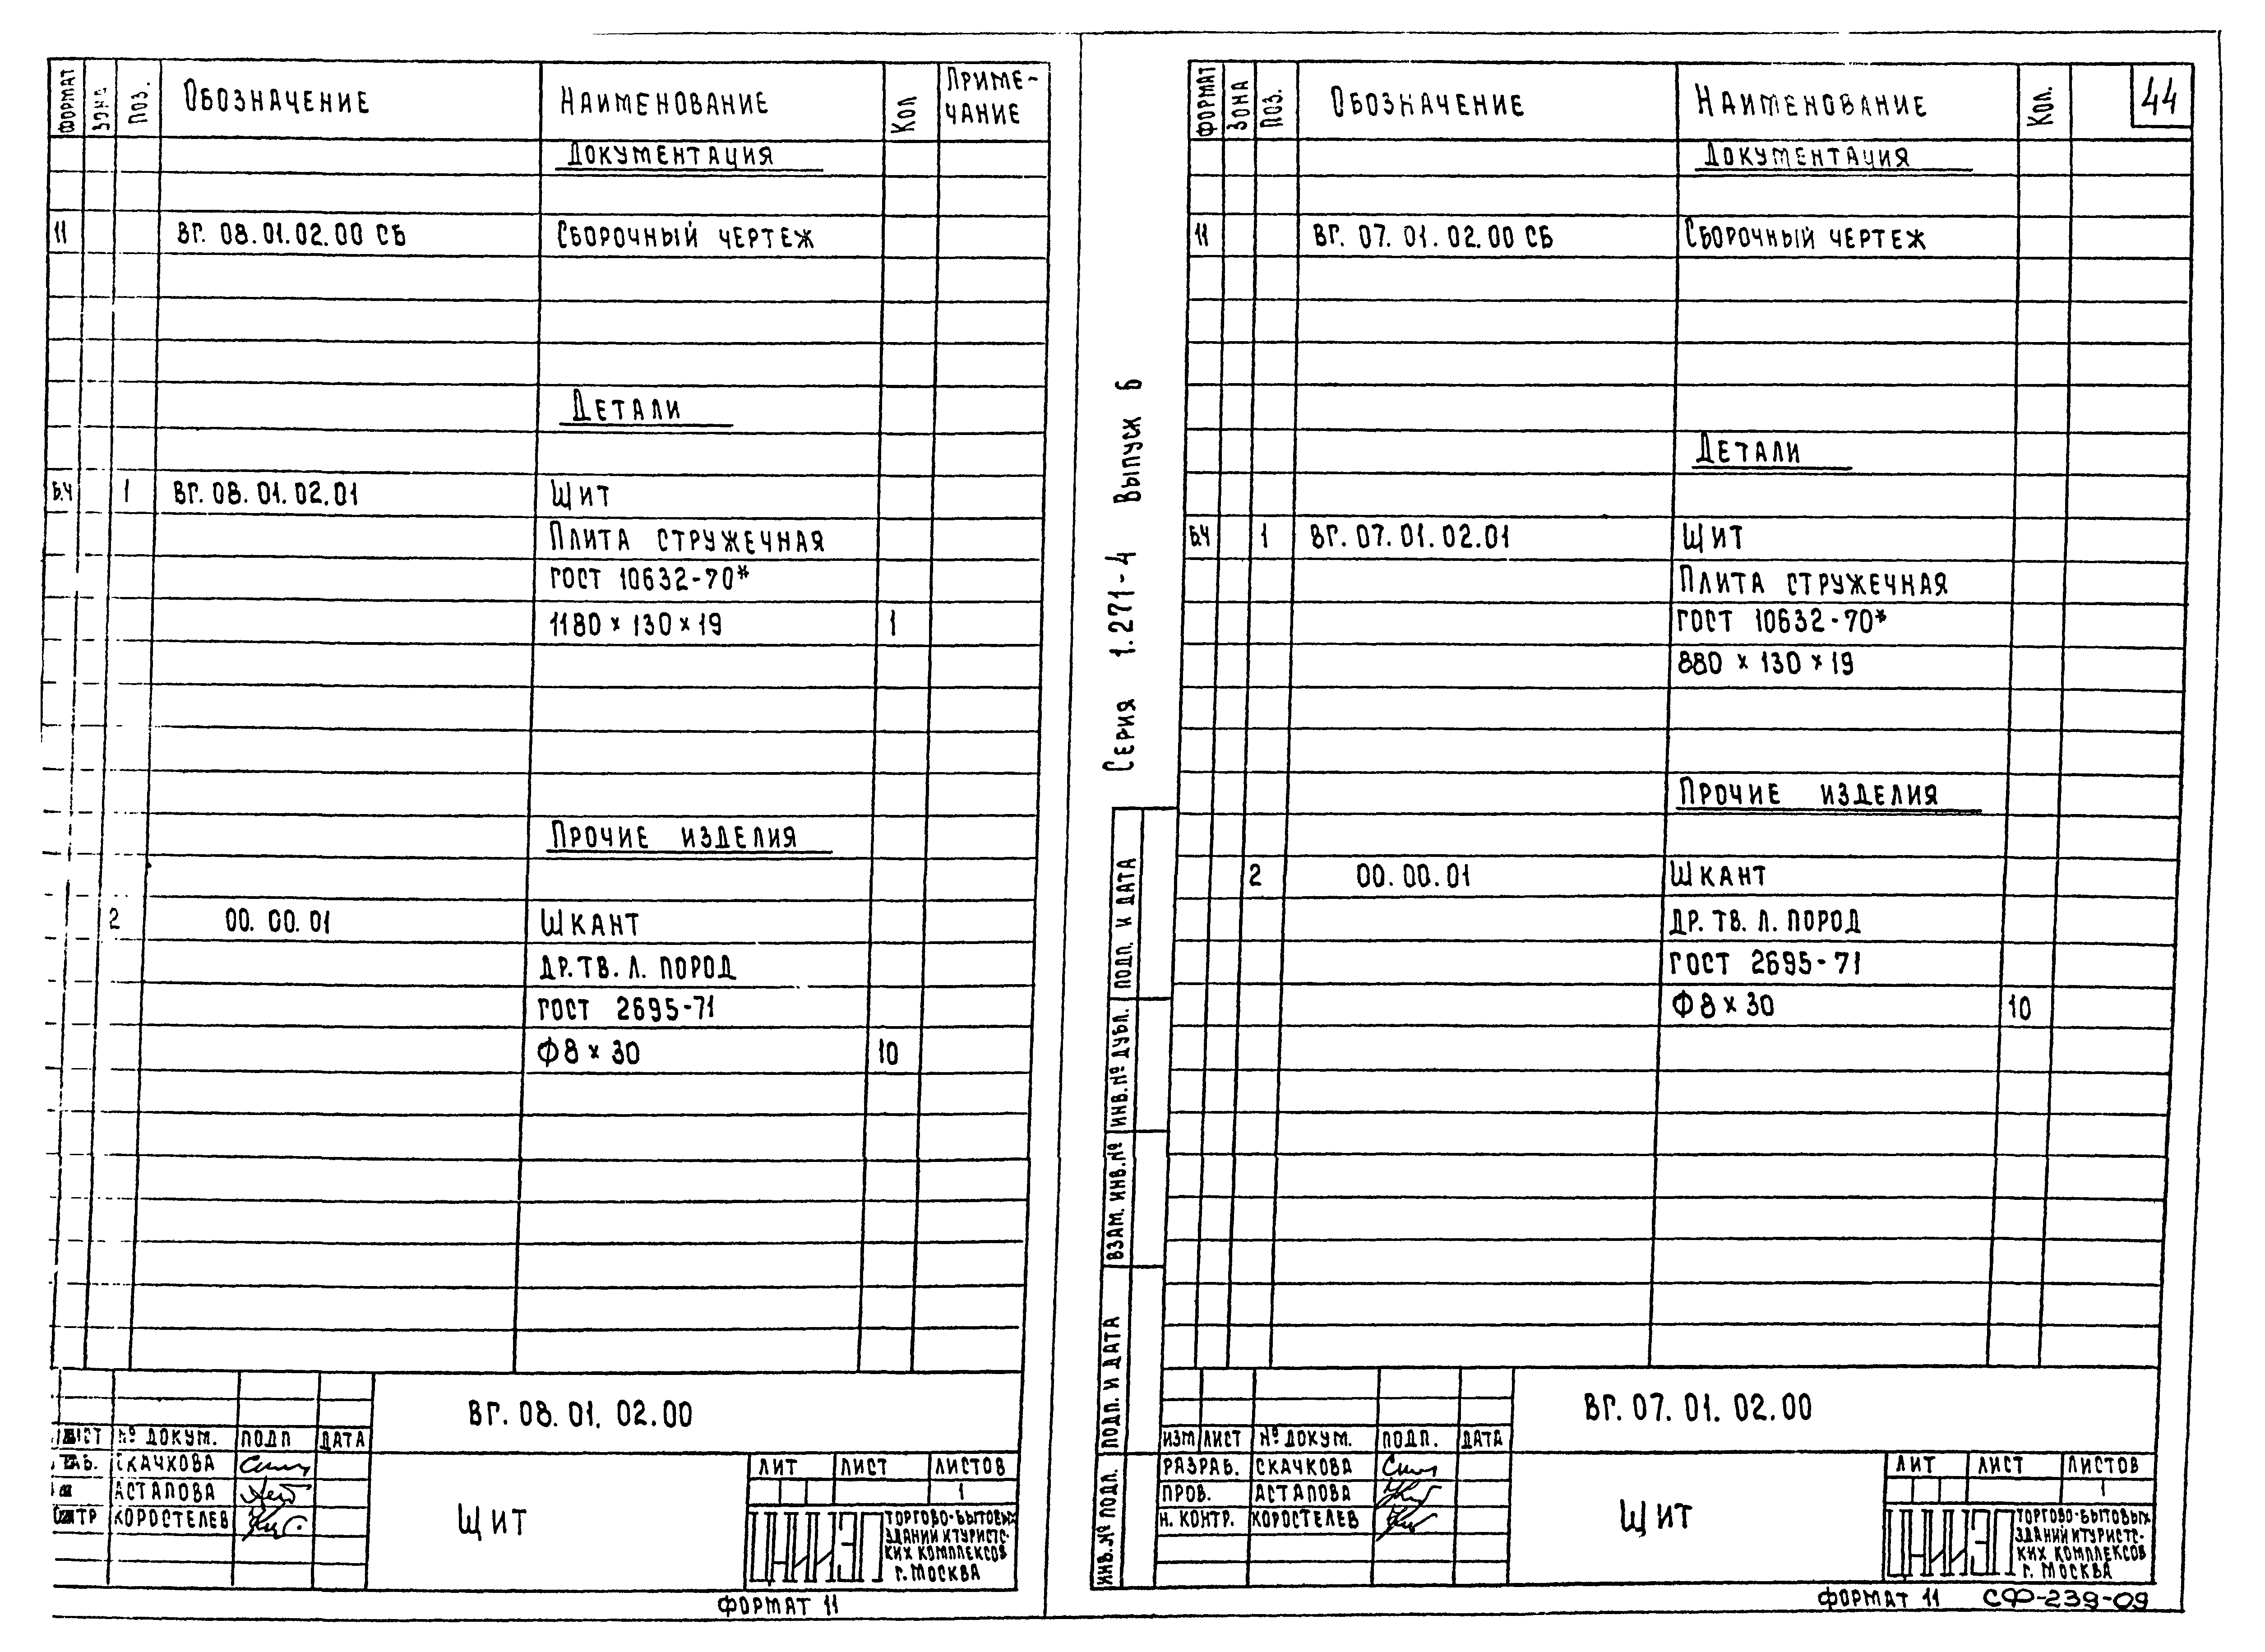 ФОРМАТ ЗОНА ПОЗ. ОБОЗНАЧЕНИЕ НАИМЕНОВАНИЕ КОЛ ПРИМЕ-
ЧАНИЕ
ДОКУМЕНТАЦИЯ
11 ВГ. 08.01.02.00 СБ СБОРОЧНЫЙ ЧЕРТЕЖ
ДЕТАЛИ
Б.Ч 1 ВГ. 08.01.02.01 ЩИТ
ПЛИТА СТРУЖЕЧНАЯ
ГОСТ 10632-70*
1180 × 130 × 19 1
ПРОЧИЕ ИЗДЕЛИЯ
2 00.00.01 ШКАНТ
ДР. ТВ. Л. ПОРОД
ГОСТ 2695-71
Ф 8 × 30 10
ВГ. 08.01.02.00
№ ДОКУМ. ПОДП ДАТА
СКАЧКОВА
АСТАПОВА
КОРОСТЕЛЕВ
ЩИТ
ЛИТ ЛИСТ ЛИСТОВ
1
ЦНИИЭП
ТОРГОВО-БЫТОВЫХ
ЗДАНИЙ И ТУРИСТС-
КИХ КОМПЛЕКСОВ
Г. МОСКВА
ФОРМАТ 11
СЕРИЯ 1.271-4 ВЫПУСК 6
ИНВ. № ПОДЛ. ПОДП. И ДАТА ВЗАМ. ИНВ. № ИНВ. № ДУБЛ. ПОДП. И ДАТА
ФОРМАТ ЗОНА ПОЗ. ОБОЗНАЧЕНИЕ НАИМЕНОВАНИЕ КОЛ. 44
ДОКУМЕНТАЦИЯ
11 ВГ. 07.01.02.00 СБ СБОРОЧНЫЙ ЧЕРТЕЖ
ДЕТАЛИ
БЧ 1 ВГ. 07.01.02.01 ЩИТ
ПЛИТА СТРУЖЕЧНАЯ
ГОСТ 10632-70*
880 × 130 × 19
ПРОЧИЕ ИЗДЕЛИЯ
2 00.00.01 ШКАНТ
ДР. ТВ. Л. ПОРОД
ГОСТ 2695-71
Ф 8 × 30 10
ВГ. 07.01.02.00
ИЗМ ЛИСТ № ДОКУМ. ПОДП. ДАТА
РАЗРАБ. СКАЧКОВА
ПРОВ. АСТАПОВА
Н. КОНТР. КОРОСТЕЛЕВ
ЩИТ
ЛИТ ЛИСТ ЛИСТОВ
1
ЦНИИЭП
ТОРГОВО-БЫТОВЫХ
ЗДАНИЙ И ТУРИСТС-
КИХ КОМПЛЕКСОВ
Г. МОСКВА
ФОРМАТ 11 СФ-239-09